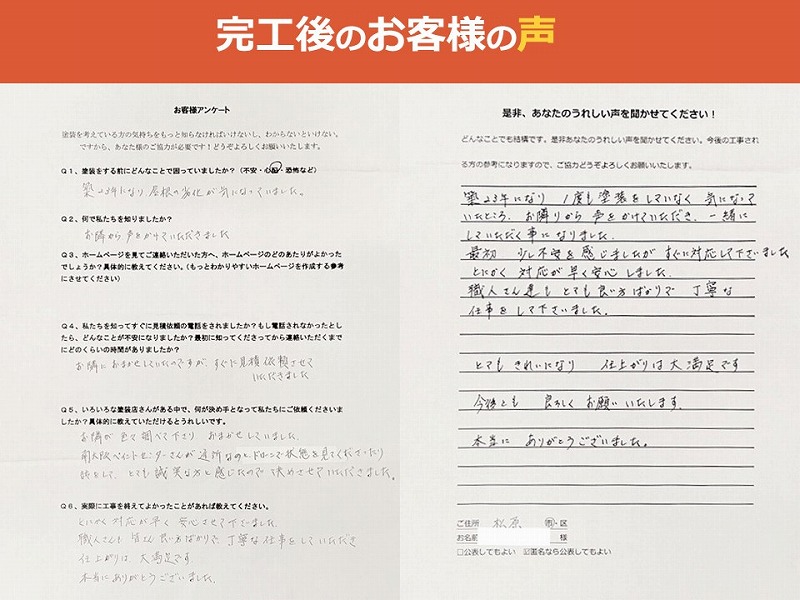 完工後のお客様の声
お客様アンケート
塗装を考えている方の気持ちをもっと知らなければいけないし、わからないといけない。
ですから、あなた様のご協力が必要です！どうぞよろしくお願いいたします。
Q1、塗装をする前にどんなことで困っていましたか？（不安・心配・恐怖など）
築23年になり、屋根の劣化が気になっていました。
Q2、何で私たちを知りましたか？
お隣から声をかけていただきました
Q3、ホームページを見てご連絡いただいた方へ、ホームページのどのあたりがよかった
でしょうか？具体的に教えてください。（もっとわかりやすいホームページを作成する参考
にさせてください）
Q4、私たちを知ってすぐに見積依頼の電話をされましたか？もし電話されなかったとし
たら、どんなことが不安になりましたか？最初に知ってくださってから連絡いただくまで
にどのくらいの時間がありましたか？
お隣におまかせしていたのですが、すぐに見積依頼させて
いただきました
Q5、いろいろな塗装店さんがある中で、何が決め手となって私たちにご依頼くださいま
したか？具体的に教えていただけるとうれしいです。
お隣が色々調べて下さり おまかせしていました。
南大阪ペイントセンターさんが近所なのと、ドローンで状態を見てくださったり
話をして、とても誠実な方と感じたので 決めさせていただきました。
Q6、実際に工事を終えてよかったことがあれば教えてください。
とにかく対応が早く 安心させて下さいました
職人さんも 皆さん良い方ばかりで、丁寧な仕事をしていただき
仕上がりは、大満足です
本当にありがとうございました。
是非、あなたのうれしい声を聞かせてください！
どんなことでも結構です。是非あなたのうれしい声を聞かせてください。今後の工事され
る方の参考になりますので、ご協力どうぞよろしくお願いいたします。
築23年になり 1度も塗装をしていなく 気になって
いたところ、お隣りから 声をかけていただき、一緒に
していただく事になりました。
最初 少し不安を感じましたが すぐに対応して下さいました
とにかく 対応が早く安心 しました。
職人さん達も とても良い方ばかりで 丁寧な
仕事を して下さいました。
とても きれいになり 仕上がりは大満足です
今後とも 良ろしく お願いいたします。
本当に ありがとうございました。
ご住所 松原 市・区
お名前 様
□公表してもよい ☑匿名なら公表してもよい